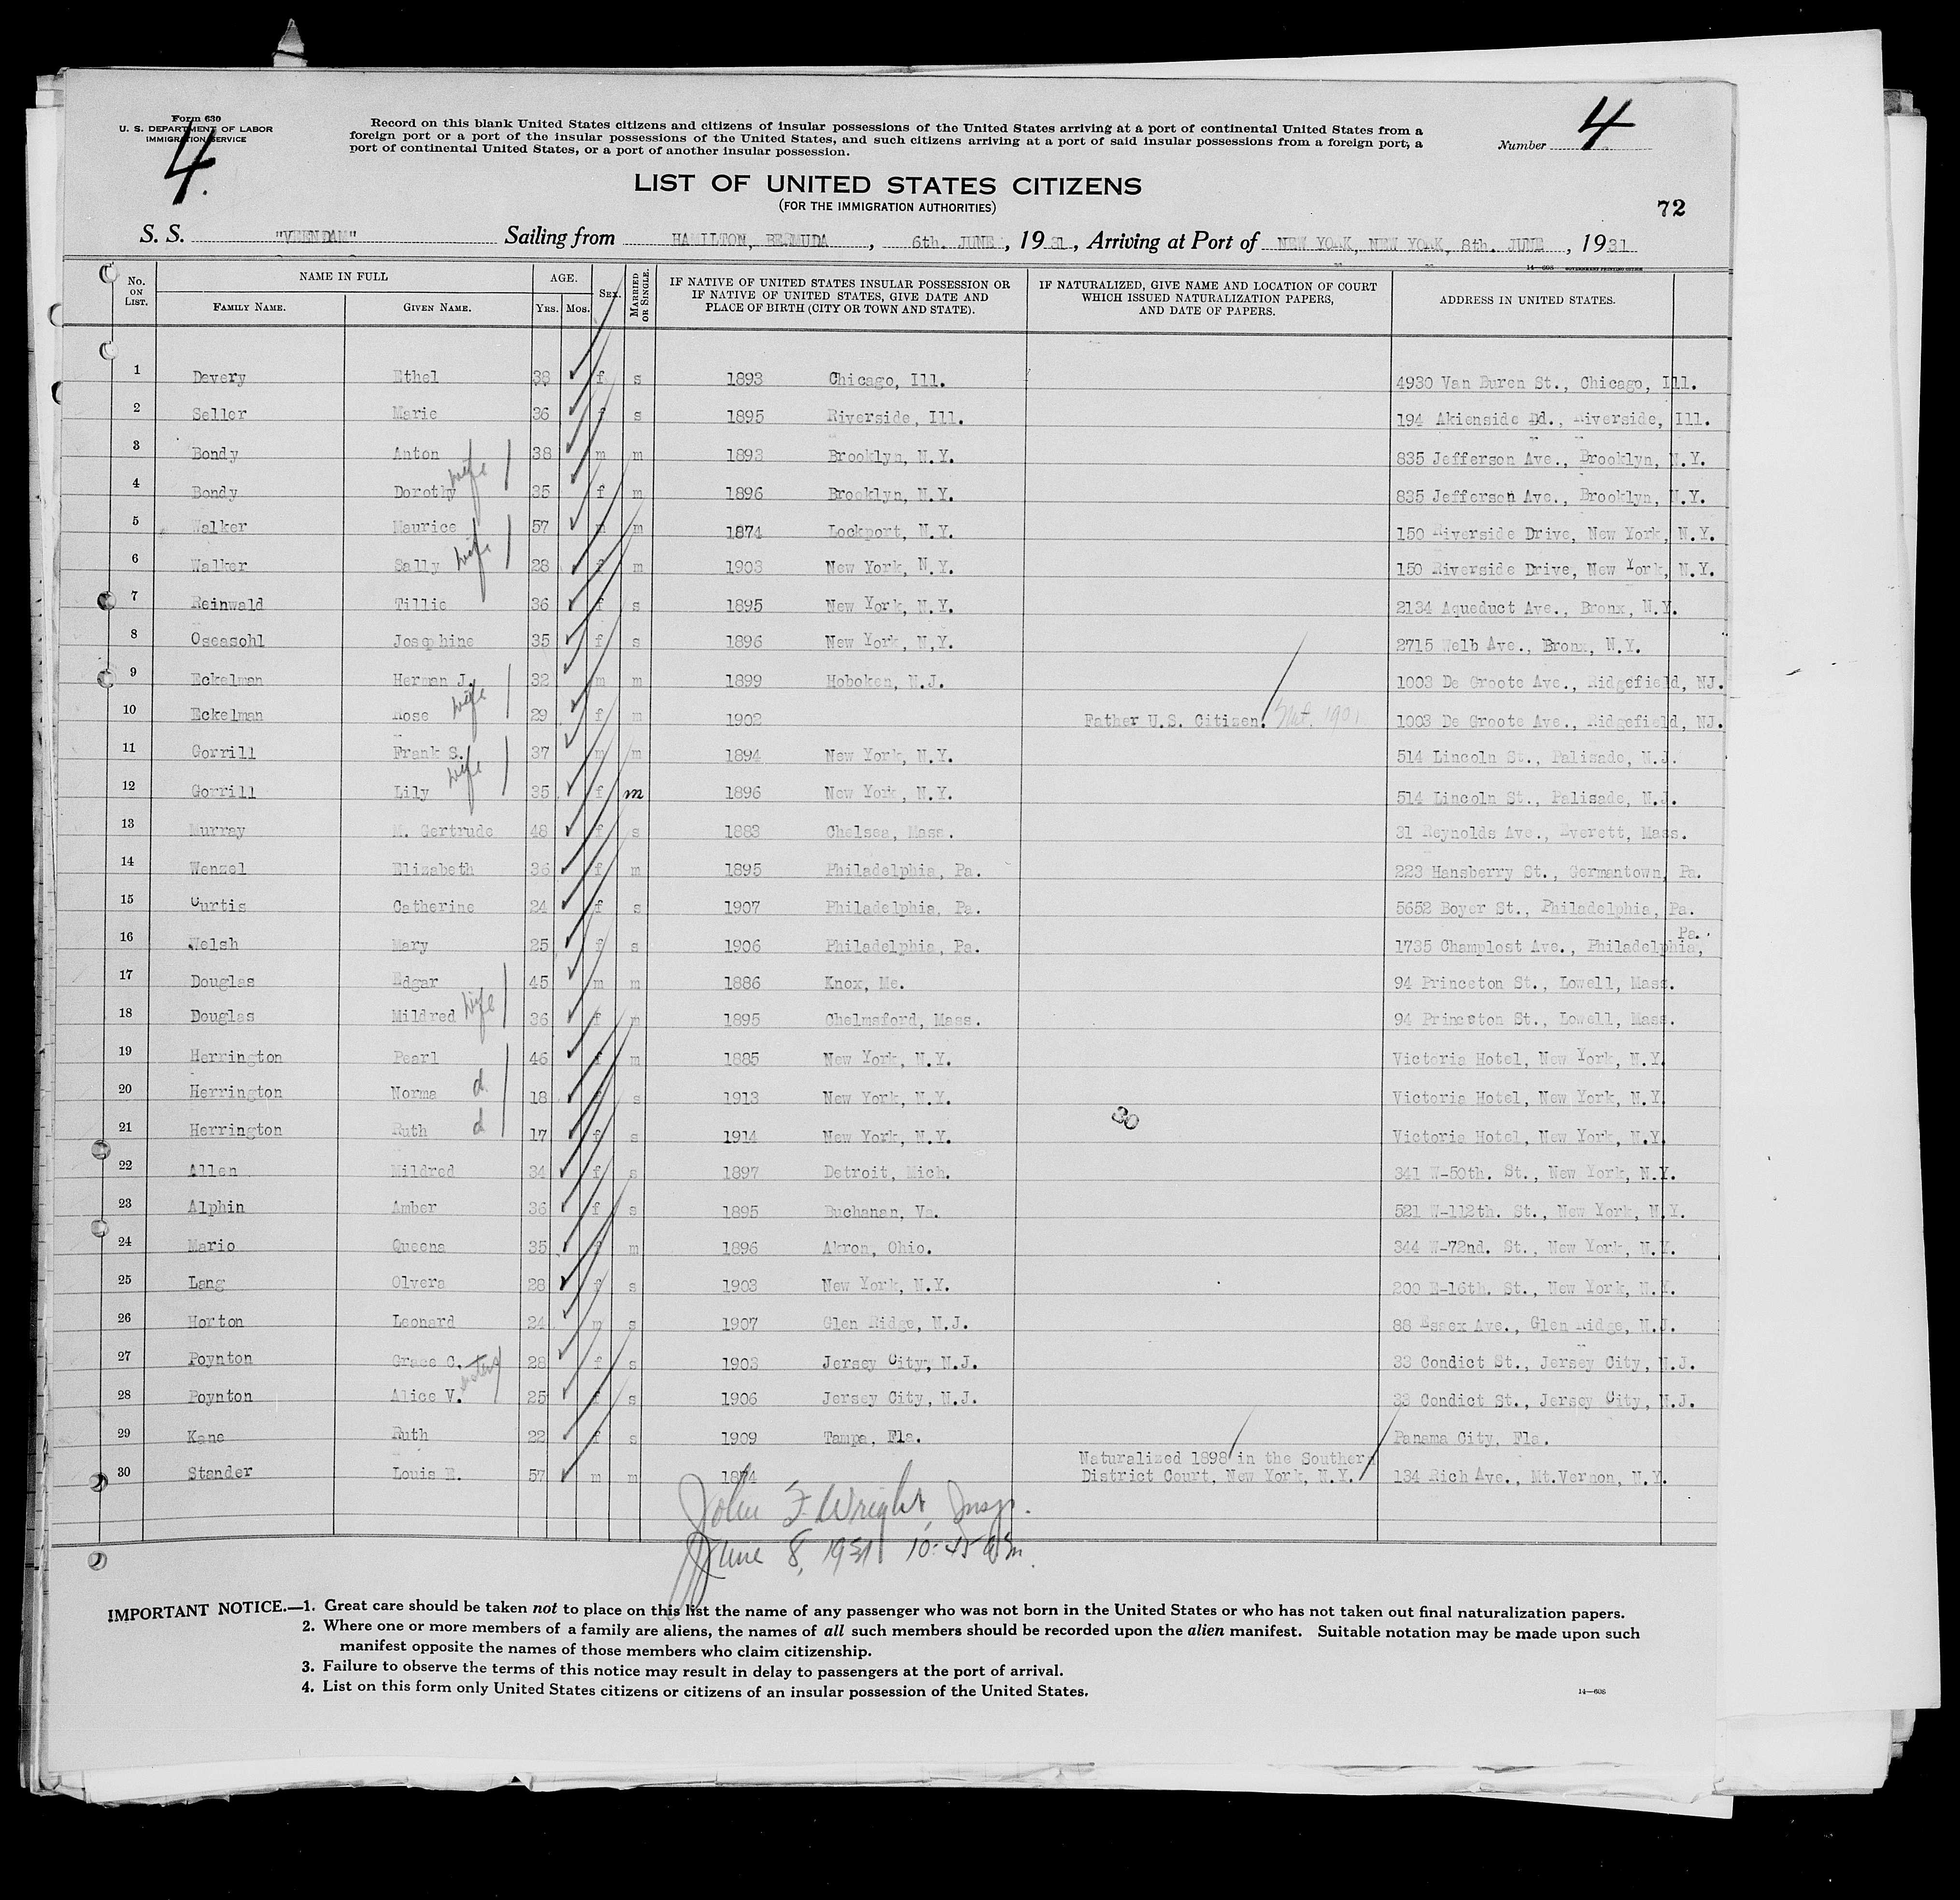 Form 630
U. S. DEPARTMENT OF LABOR
IMMIGRATION SERVICE
4.
Record on this blank United States citizens and citizens of insular possessions of the United States arriving at a port of continental United States from a
foreign port or a port of the insular possessions of the United States, and such citizens arriving at a port of said insular possessions from a foreign port, a
port of continental United States, or a port of another insular possession.
Number 4
LIST OF UNITED STATES CITIZENS
(FOR THE IMMIGRATION AUTHORITIES)
72
S. S. "VEENDAM" Sailing from HAMILTON, BERMUDA, 6th. JUNE, 1931, Arriving at Port of NEW YORK, NEW YORK, 8th. JUNE, 1931
14—608 GOVERNMENT PRINTING OFFICE
No. ON LIST. NAME IN FULL FAMILY NAME. GIVEN NAME. AGE. YRS. MOS. SEX. MARRIED OR SINGLE. IF NATIVE OF UNITED STATES INSULAR POSSESSION OR IF NATIVE OF UNITED STATES, GIVE DATE AND PLACE OF BIRTH (CITY OR TOWN AND STATE). IF NATURALIZED, GIVE NAME AND LOCATION OF COURT WHICH ISSUED NATURALIZATION PAPERS, AND DATE OF PAPERS. ADDRESS IN UNITED STATES.
1 Devery Ethel 38 f s 1893 Chicago, Ill. 4930 Van Buren St., Chicago, Ill.
2 Seller Marie 36 f s 1895 Riverside, Ill. 194 Akienside Bd., Riverside, Ill.
3 Bondy Anton 38 m m 1893 Brooklyn, N.Y. 835 Jefferson Ave., Brooklyn, N.Y.
4 Bondy Dorothy wife 35 f m 1896 Brooklyn, N.Y. 835 Jefferson Ave., Brooklyn, N.Y.
5 Walker Maurice 57 m m 1874 Lockport, N.Y. 150 Riverside Drive, New York, N.Y.
6 Walker Sally wife 28 f m 1903 New York, N.Y. 150 Riverside Drive, New York, N.Y.
7 Reinwald Tillie 36 f s 1895 New York, N.Y. 2134 Aqueduct Ave., Bronx, N.Y.
8 Oseasohl Josephine 35 f s 1896 New York, N.Y. 2715 Welb Ave., Bronx, N.Y.
9 Eckelman Herman J. 32 m m 1899 Hoboken, N.J. 1003 De Groote Ave., Ridgefield, NJ.
10 Eckelman Rose wife 29 f m 1902 Father U.S. Citizen. Nat. 1901 1003 De Groote Ave., Ridgefield, NJ.
11 Gorrill Frank S. 37 m m 1894 New York, N.Y. 514 Lincoln St., Palisade, N.J.
12 Gorrill Lily wife 35 f m 1896 New York, N.Y. 514 Lincoln St., Palisade, N.J.
13 Murray M. Gertrude 48 f s 1883 Chelsea, Mass. 31 Reynolds Ave., Everett, Mass.
14 Wenzel Elizabeth 36 f m 1895 Philadelphia, Pa. 223 Hansberry St., Germantown, Pa.
15 Curtis Catherine 24 f s 1907 Philadelphia, Pa. 5652 Boyer St., Philadelphia, Pa.
16 Welsh Mary 25 f s 1906 Philadelphia, Pa. 1735 Champlost Ave., Philadelphia, Pa.
17 Douglas Edgar 45 m m 1886 Knox, Me. 94 Princeton St., Lowell, Mass.
18 Douglas Mildred wife 36 f m 1895 Chelmsford, Mass. 94 Princeton St., Lowell, Mass.
19 Herrington Pearl 46 f m 1885 New York, N.Y. Victoria Hotel, New York, N.Y.
20 Herrington Norma d. 18 f s 1913 New York, N.Y. Victoria Hotel, New York, N.Y.
21 Herrington Ruth d 17 f s 1914 New York, N.Y. Victoria Hotel, New York, N.Y.
22 Allen Mildred 34 f s 1897 Detroit, Mich. 341 W-50th. St., New York, N.Y.
23 Alphin Amber 36 f s 1895 Buchanan, Va. 521 W-112th. St., New York, N.Y.
24 Mario Queena 35 f m 1896 Akron, Ohio. 344 W-72nd. St., New York, N.Y.
25 Lang Olvera 28 f s 1903 New York, N.Y. 200 E-16th. St., New York, N.Y.
26 Horton Leonard 24 m s 1907 Glen Ridge, N.J. 88 Essex Ave., Glen Ridge, N.J.
27 Poynton Grace C. 28 f s 1903 Jersey City, N.J. 33 Condict St., Jersey City, N.J.
28 Poynton Alice V. sisters 25 f s 1906 Jersey City, N.J. 33 Condict St., Jersey City, N.J.
29 Kane Ruth 22 f s 1909 Tampa, Fla. Panama City, Fla.
30 Stander Louis E. 57 m m 1874 Naturalized 1898 in the Southern District Court, New York, N.Y. 134 Rich Ave., Mt.Vernon, N.Y.
John F. Wright, Insp.
June 8, 1931 10:45 am.
IMPORTANT NOTICE.—1. Great care should be taken not to place on this list the name of any passenger who was not born in the United States or who has not taken out final naturalization papers.
2. Where one or more members of a family are aliens, the names of all such members should be recorded upon the alien manifest. Suitable notation may be made upon such
manifest opposite the names of those members who claim citizenship.
3. Failure to observe the terms of this notice may result in delay to passengers at the port of arrival.
4. List on this form only United States citizens or citizens of an insular possession of the United States.
14—608